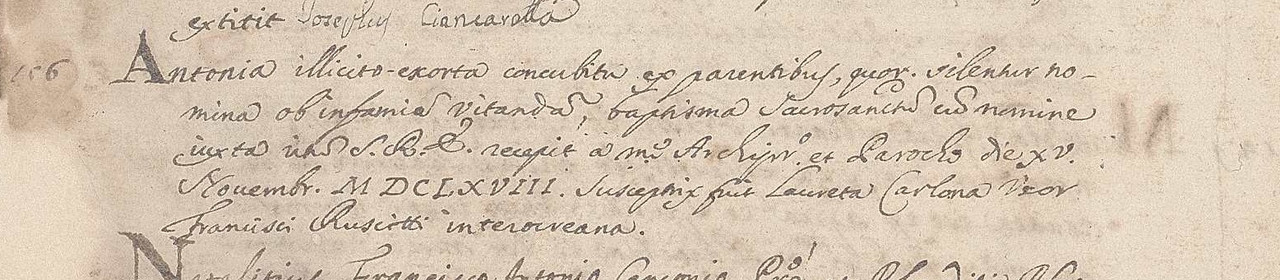 extitit Josephus Ciancarella
156
Antonia illicito exorta concubitu ex parentibus, quor. silentur no-
mina ob infamiā vitandā, baptisma Sacrosanctū cū nomine
iuxta ritū S. R. E. recepit à me Archipro. et Parocho die XV.
Novembr. MDCLXVIII. Susceptrix fuit Laureta Carlona Uxor
Francisci Ruscitti interocreana.
Natalitius Francisco Antonio